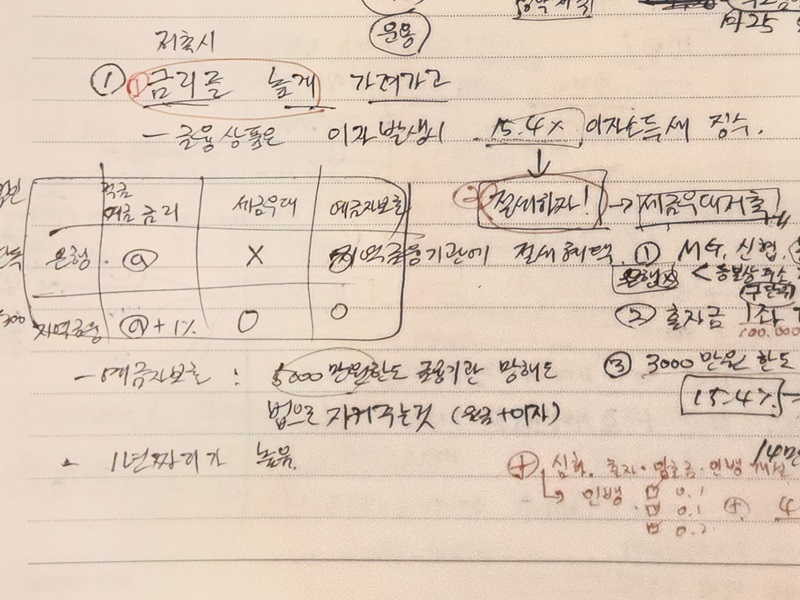 운용
마25
저축시
① ① 금리를 높게 가져가고
- 금융상품은 이자 발생시 15.4% 이자소득세 징수.
↓
② 절세하자! → 세금우대저축
적금 예금 금리 세금우대 예금자보호
은행 ⓐ X
지역금융기관에 절세혜택. ① MG, 신협,
은행X < 등본상 주소
지역금융 ⓐ+1% O O
② 출자금 1좌
100.000
- 예금자보호 : 5000만원한도 금융기관 망해도
③ 3000만원 한도
법으로 지켜주는것 (원금+이자)
15.4% →
- 1년짜리가 높음.
14만
⊕ 심화. 출자·입출금·인뱅 개설
↳ 인뱅 0.1
0.1 ⊕ 4
0.2